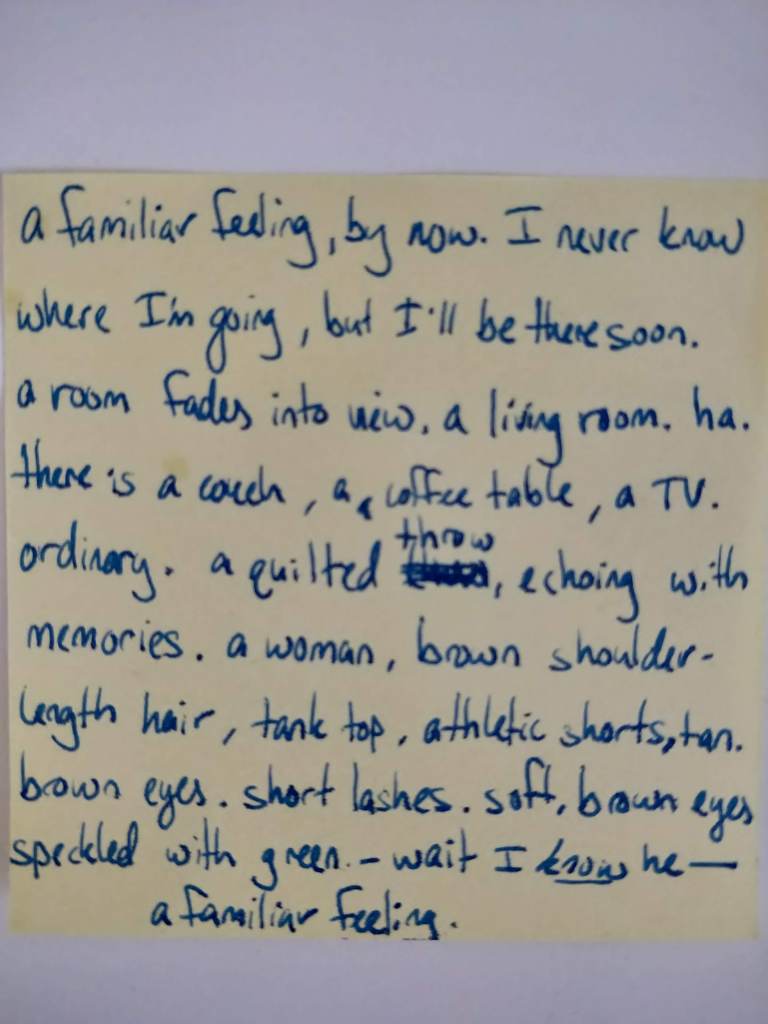 a familiar feeling, by now. I never know
where I'm going, but I'll be there soon.
a room fades into view. a living room. ha.
there is a couch, a coffee table, a TV.
throw
ordinary. a quilted , echoing with
memories. a woman, brown shoulder-
length hair, tank top, athletic shorts, tan.
brown eyes. short lashes. soft, brown eyes
speckled with green. - wait I know he—
a familiar feeling.